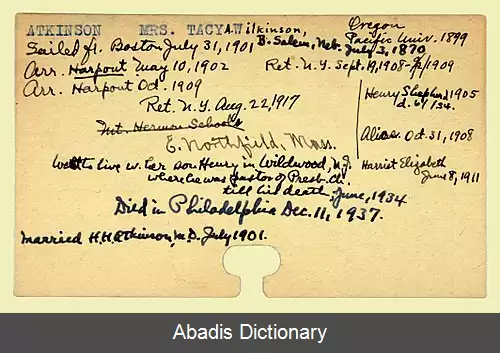 ATKINSON MRS. TACY A. Wilkinson, Oregon
Pacific Univ. 1899
Sailed fr. Boston July 31, 1901 B. Salem, Neb. July 3, 1870
Arr. Harpout May 10, 1902 Ret. N.Y. Sept. 19, 1908- /1909
Arr. Harpout Oct. 1909 Henry Shephard, 1905
d. 6/ /34.
Ret. N.Y. Aug. 22, 1917
Mt. Hermon School Alice. Oct. 31, 1908
E. Northfield, Mass.
Went to live w. her son Henry in Wildwood, N.J. Harriet Elizabeth
where he was pastor of Presb. Ch. June 8, 1911
till his death, June, 1934
Died in Philadelphia Dec. 11, 1937.
Married H.H. Atkinson, M.D. July 1901.
Abadis Dictionary